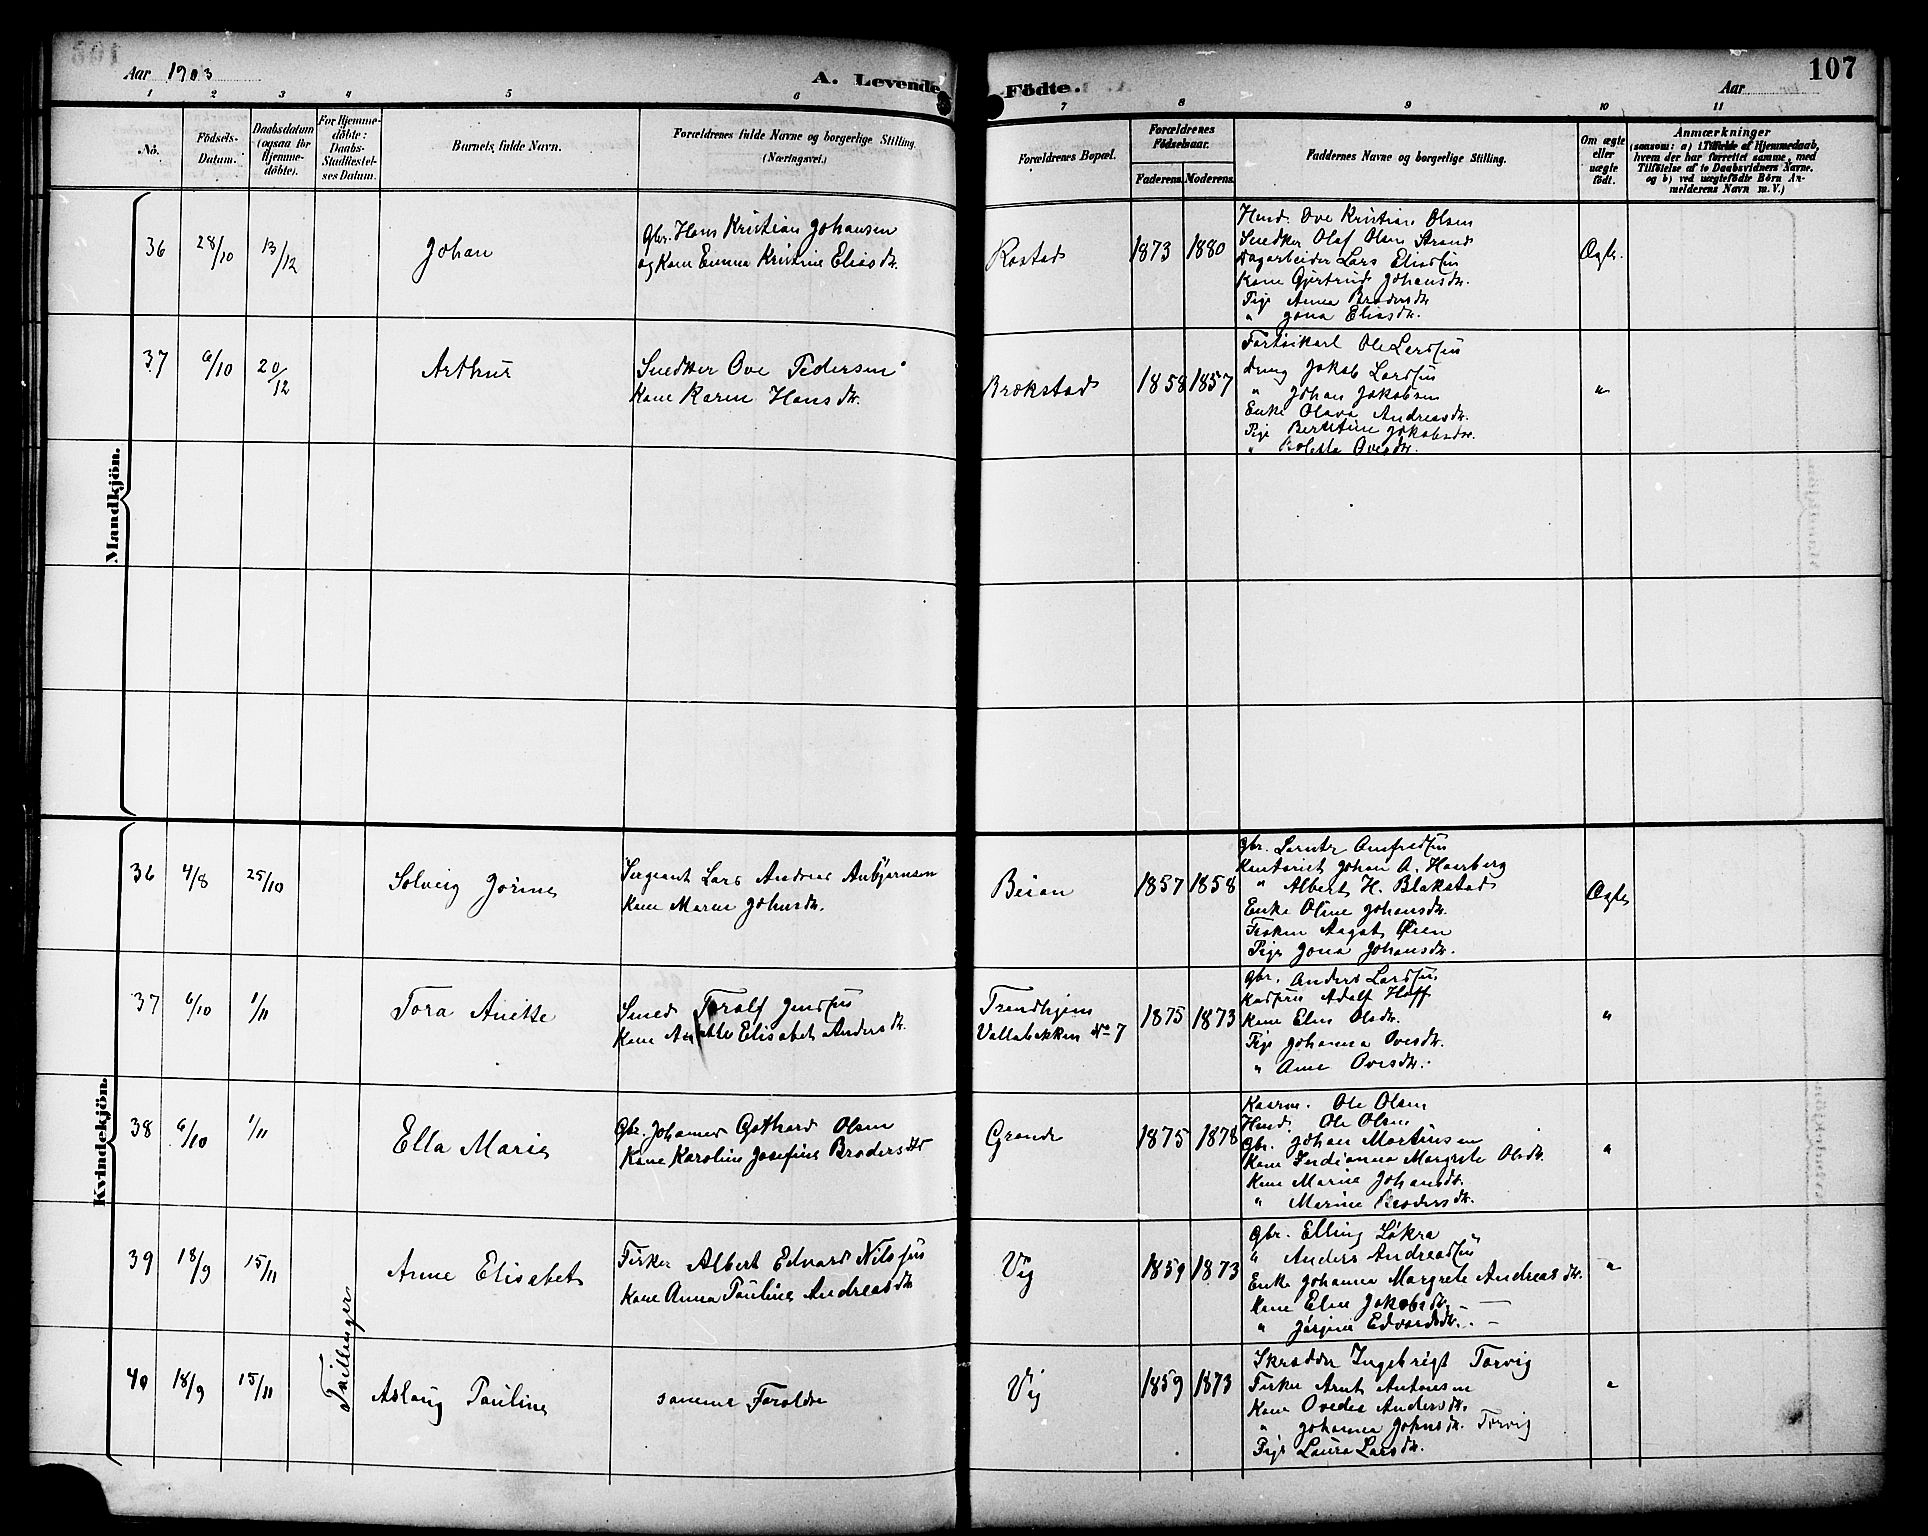 Aar 1903
A. Levende Födte.
107
Aar
1 2 3 4 5 6 7 8 9 10 11
No.
Födsels-Datum.
Daabsdatum (ogsaa for Hjemme-döbte).
For Hjemme-döbte: Daabs-Stadfæstel-ses Datum.
Barnets fulde Navn.
Forældrenes fulde Navne og borgerlige Stilling. (Næringsvei.)
Forældrenes Bopæl.
Forældrenes Födselsaar.
Faderens. Moderens.
Faddernes Navne og borgerlige Stilling.
Om ægte eller uægte födt.
Anmærkninger
(saasom: a) i Tilfælde af Hjemmedaab,
hvem der har forrettet samme, med
Tilföielse af to Daabsvidners Navne.
og b) ved uægtefödte Börn An-
melderens Navn m. V.)
Mandkjön.
36 28/10 13/12 Johan
Gbr. Hans Kristian Johansen
og Kone Emma Kristine Eliasdtr.
Rostad 1873 1880
Husd. Ove Kristian Olsen
Snedker Olaf Olsen Strand
Dagarbeider Lars Eliassen
Kone Gjertrud Johansdtr.
Pige Anna Brodersdtr
" Jona Eliasdtr.
Ægte.
37 6/10 20/12 Arthur
Snedker Ove Pedersen
Kone Karen Hansdtr.
Brækstad 1858 1857
Ole Larssen
Ung. Jakob Larssen
" Johan Jakobsen
Enke Olava Andreasdtr.
Pige Berntine Jakobsdtr.
" Ovesdtr.
"
Kvindekjön.
36 4/8 25/10 Solveig Jörine
Sergeant Lars Andreas Anbjørnsen
Kone Maren Johnsdtr.
Beian 1857 1858
Gbr. Lorntz Amfredsen
Johan A. Hoerberg
" Albert H. Blakstad
Enke Oline Johansdtr.
Frøken Aagot Øien
Pige Jona Johansdtr.
Ægte
37 6/10 1/11 Tora Anette
Smed Toralf Jenssen
Kone Anette Elisabet Andersdtr.
Trondhjem
Vollabakken No 7
1875 1873
Gbr. Anders Larssen
Adolf Hoff
Kone Elen Olsdtr.
Pige Johanna Ovesdtr.
" Anne Ovesdtr.
"
38 6/10 1/11 Ella Marie
Gbr. Johannes Gothard Olsen
Kone Karoline Josefine Brodersdtr
Grande 1875 1878
Ole Olsen
Husd. Ole Olsen
Gbr. Johan Martinsen
Kone Indianna Margrete Olsdtr.
Kone Marine Johansdtr.
" Marine Brodersdtr.
"
39 18/9 15/11 Anne Elisabet
Fisker Albert Edvard Nilssen
Kone Anna Pauline Andreasdtr
Vig 1859 1873
Gbr. Elling Løkra
" Anders Andreassen
Enke Johanna Margrete Andreasdtr.
Kone Elen Jakobsdtr. —
" Jørgine Edvardsdtr. —
"
Tvillinger
40 18/9 15/11 Aslaug Pauline
samme Forældre
Vig 1859 1873
Skrædder Ingebrigt Torvig
Fisker Arnt Antonsen
Kone Ovedia Andersdtr.
" Johanna Johnsdtr. Torvig
Pige Laura Larsdtr.
"